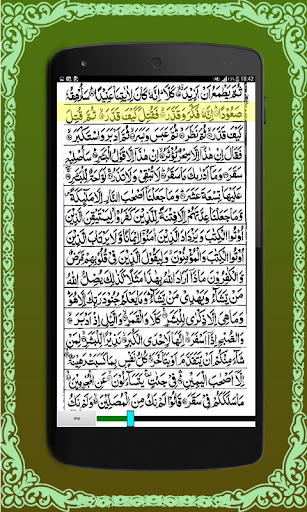 18:42
ثُمَّ يَطْمَعُ اَنْ اَزِيْدَ ۙ كَلَّا ؕ اِنَّهٗ كَانَ لِاٰيٰتِنَا عَنِيْدًا ؕ سَاُرْهِقُهٗ
صَعُوْدًا ؕ اِنَّهٗ فَكَّرَ وَقَدَّرَ ۙ فَقُتِلَ كَيْفَ قَدَّرَ ۙ ثُمَّ قُتِلَ
كَيْفَ قَدَّرَ ۙ ثُمَّ نَظَرَ ۙ ثُمَّ عَبَسَ وَبَسَرَ ۙ ثُمَّ اَدْبَرَ وَاسْتَكْبَرَ ۙ
فَقَالَ اِنْ هٰذَاۤ اِلَّا سِحْرٌ يُّؤْثَرُ ۙ اِنْ هٰذَاۤ اِلَّا قَوْلُ الْبَشَرِ ؕ سَاُصْلِيْهِ
سَقَرَ وَمَاۤ اَدْرٰىكَ مَا سَقَرُ ؕ لَا تُبْقِيْ وَلَا تَذَرُ ۚ لَوَّاحَةٌ لِّلْبَشَرِ ۚ
عَلَيْهَا تِسْعَةَ عَشَرَ ؕ وَمَا جَعَلْنَاۤ اَصْحٰبَ النَّارِ اِلَّا مَلٰٓئِكَةً
وَّمَا جَعَلْنَا عِدَّتَهُمْ اِلَّا فِتْنَةً لِّلَّذِيْنَ كَفَرُوْا لِيَسْتَيْقِنَ الَّذِيْنَ
اُوْتُوا الْكِتٰبَ وَيَزْدَادَ الَّذِيْنَ اٰمَنُوْۤا اِيْمَانًا وَّلَا يَرْتَابَ الَّذِيْنَ
اُوْتُوا الْكِتٰبَ وَالْمُؤْمِنُوْنَ وَلِيَقُوْلَ الَّذِيْنَ فِيْ قُلُوْبِهِمْ مَّرَضٌ
وَّالْكٰفِرُوْنَ مَاذَاۤ اَرَادَ اللّٰهُ بِهٰذَا مَثَلًا ؕ كَذٰلِكَ يُضِلُّ اللّٰهُ
مَنْ يَّشَآءُ وَيَهْدِيْ مَنْ يَّشَآءُ ؕ وَمَا يَعْلَمُ جُنُوْدَ رَبِّكَ اِلَّا هُوَ ؕ
وَمَا هِيَ اِلَّا ذِكْرٰى لِلْبَشَرِ كَلَّا وَالْقَمَرِ ۙ وَالَّيْلِ اِذْ اَدْبَرَ ۙ
وَالصُّبْحِ اِذَاۤ اَسْفَرَ ۙ اِنَّهَا لَاِحْدَى الْكُبَرِ ۙ نَذِيْرًا لِّلْبَشَرِ ۙ لِمَنْ
شَآءَ مِنْكُمْ اَنْ يَّتَقَدَّمَ اَوْ يَتَاَخَّرَ ؕ كُلُّ نَفْسٍۭ بِمَا كَسَبَتْ رَهِيْنَةٌ ۙ
اِلَّاۤ اَصْحٰبَ الْيَمِيْنِ ۛ فِيْ جَنّٰتٍ ۛ يَتَسَآءَلُوْنَ ۙ عَنِ الْمُجْرِمِيْنَ ۙ
مَا سَلَكَكُمْ فِيْ سَقَرَ قَالُوْا لَمْ نَكُ مِنَ الْمُصَلِّيْنَ ۙ وَلَمْ نَكُ
stop